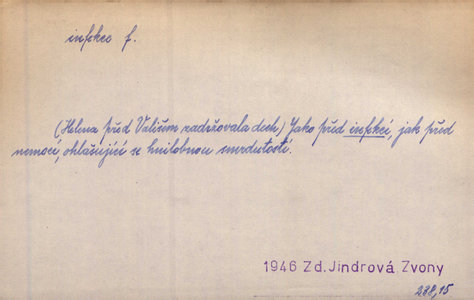 infekce f.
(Helena před Vališem zadržovala dech) Jako před infekcí, jak před
nemocí, ohlašující se hnilobnou smrdutostí.
1946 Zd. Jindrová Zvony
238,15